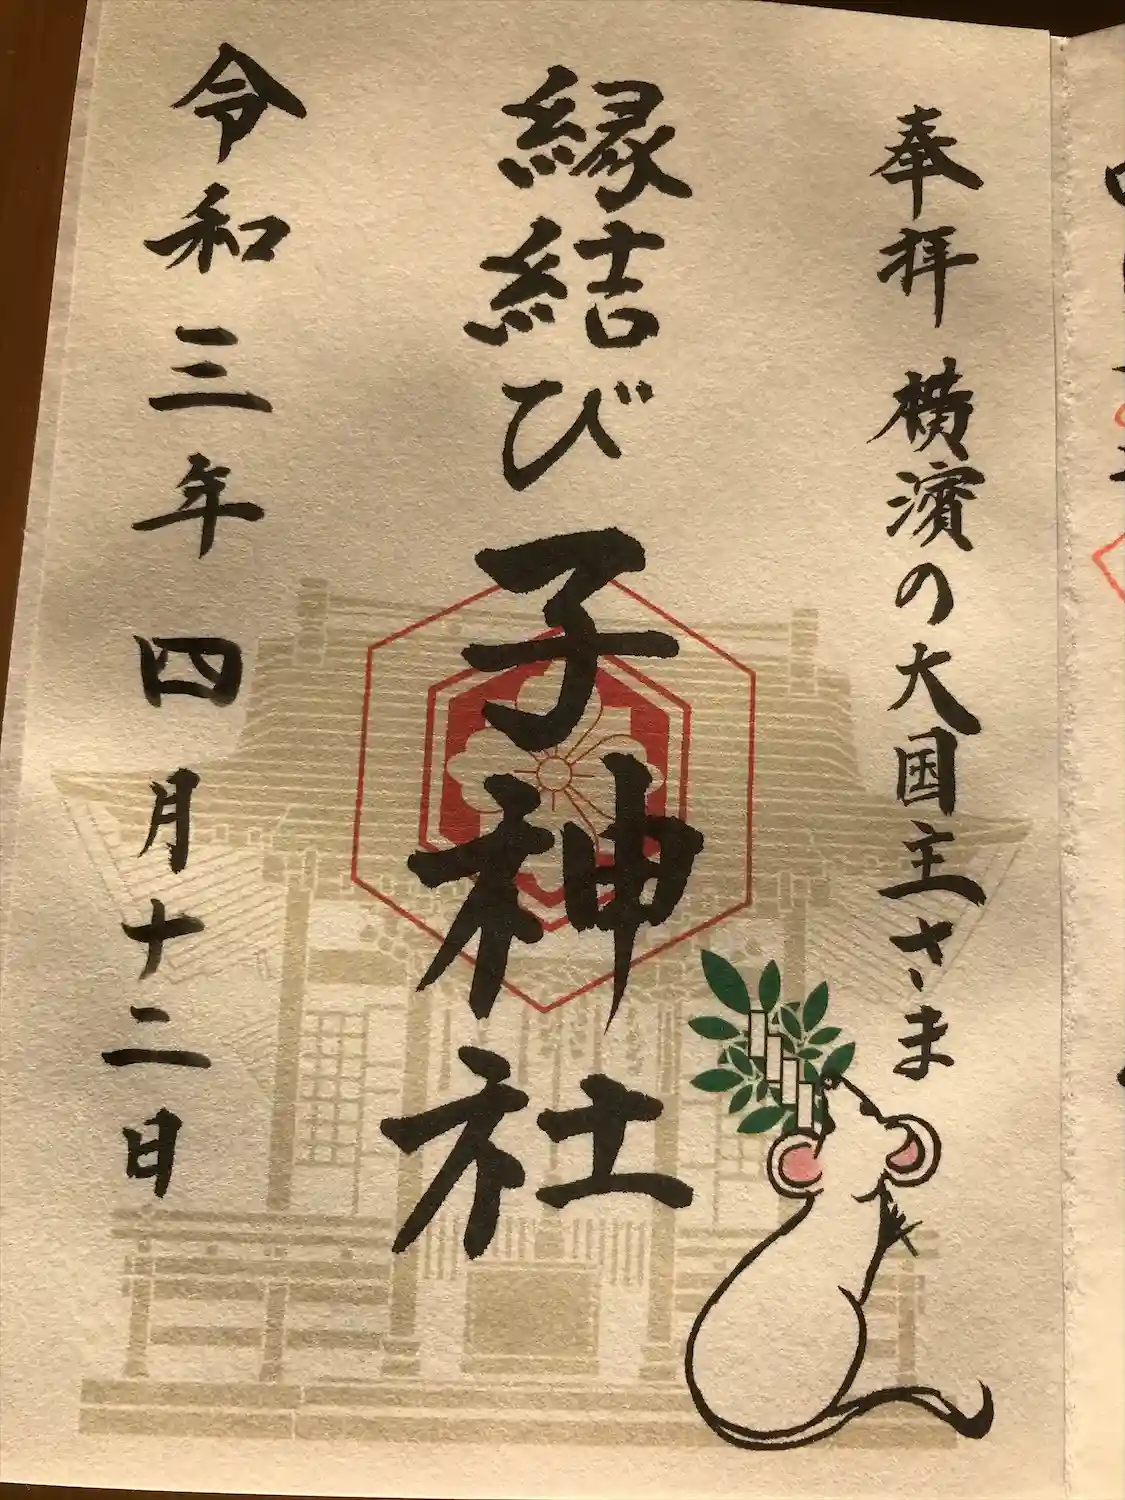 奉拝 横濱の大国主さま
縁結び 子神社
令和三年 四月十二日